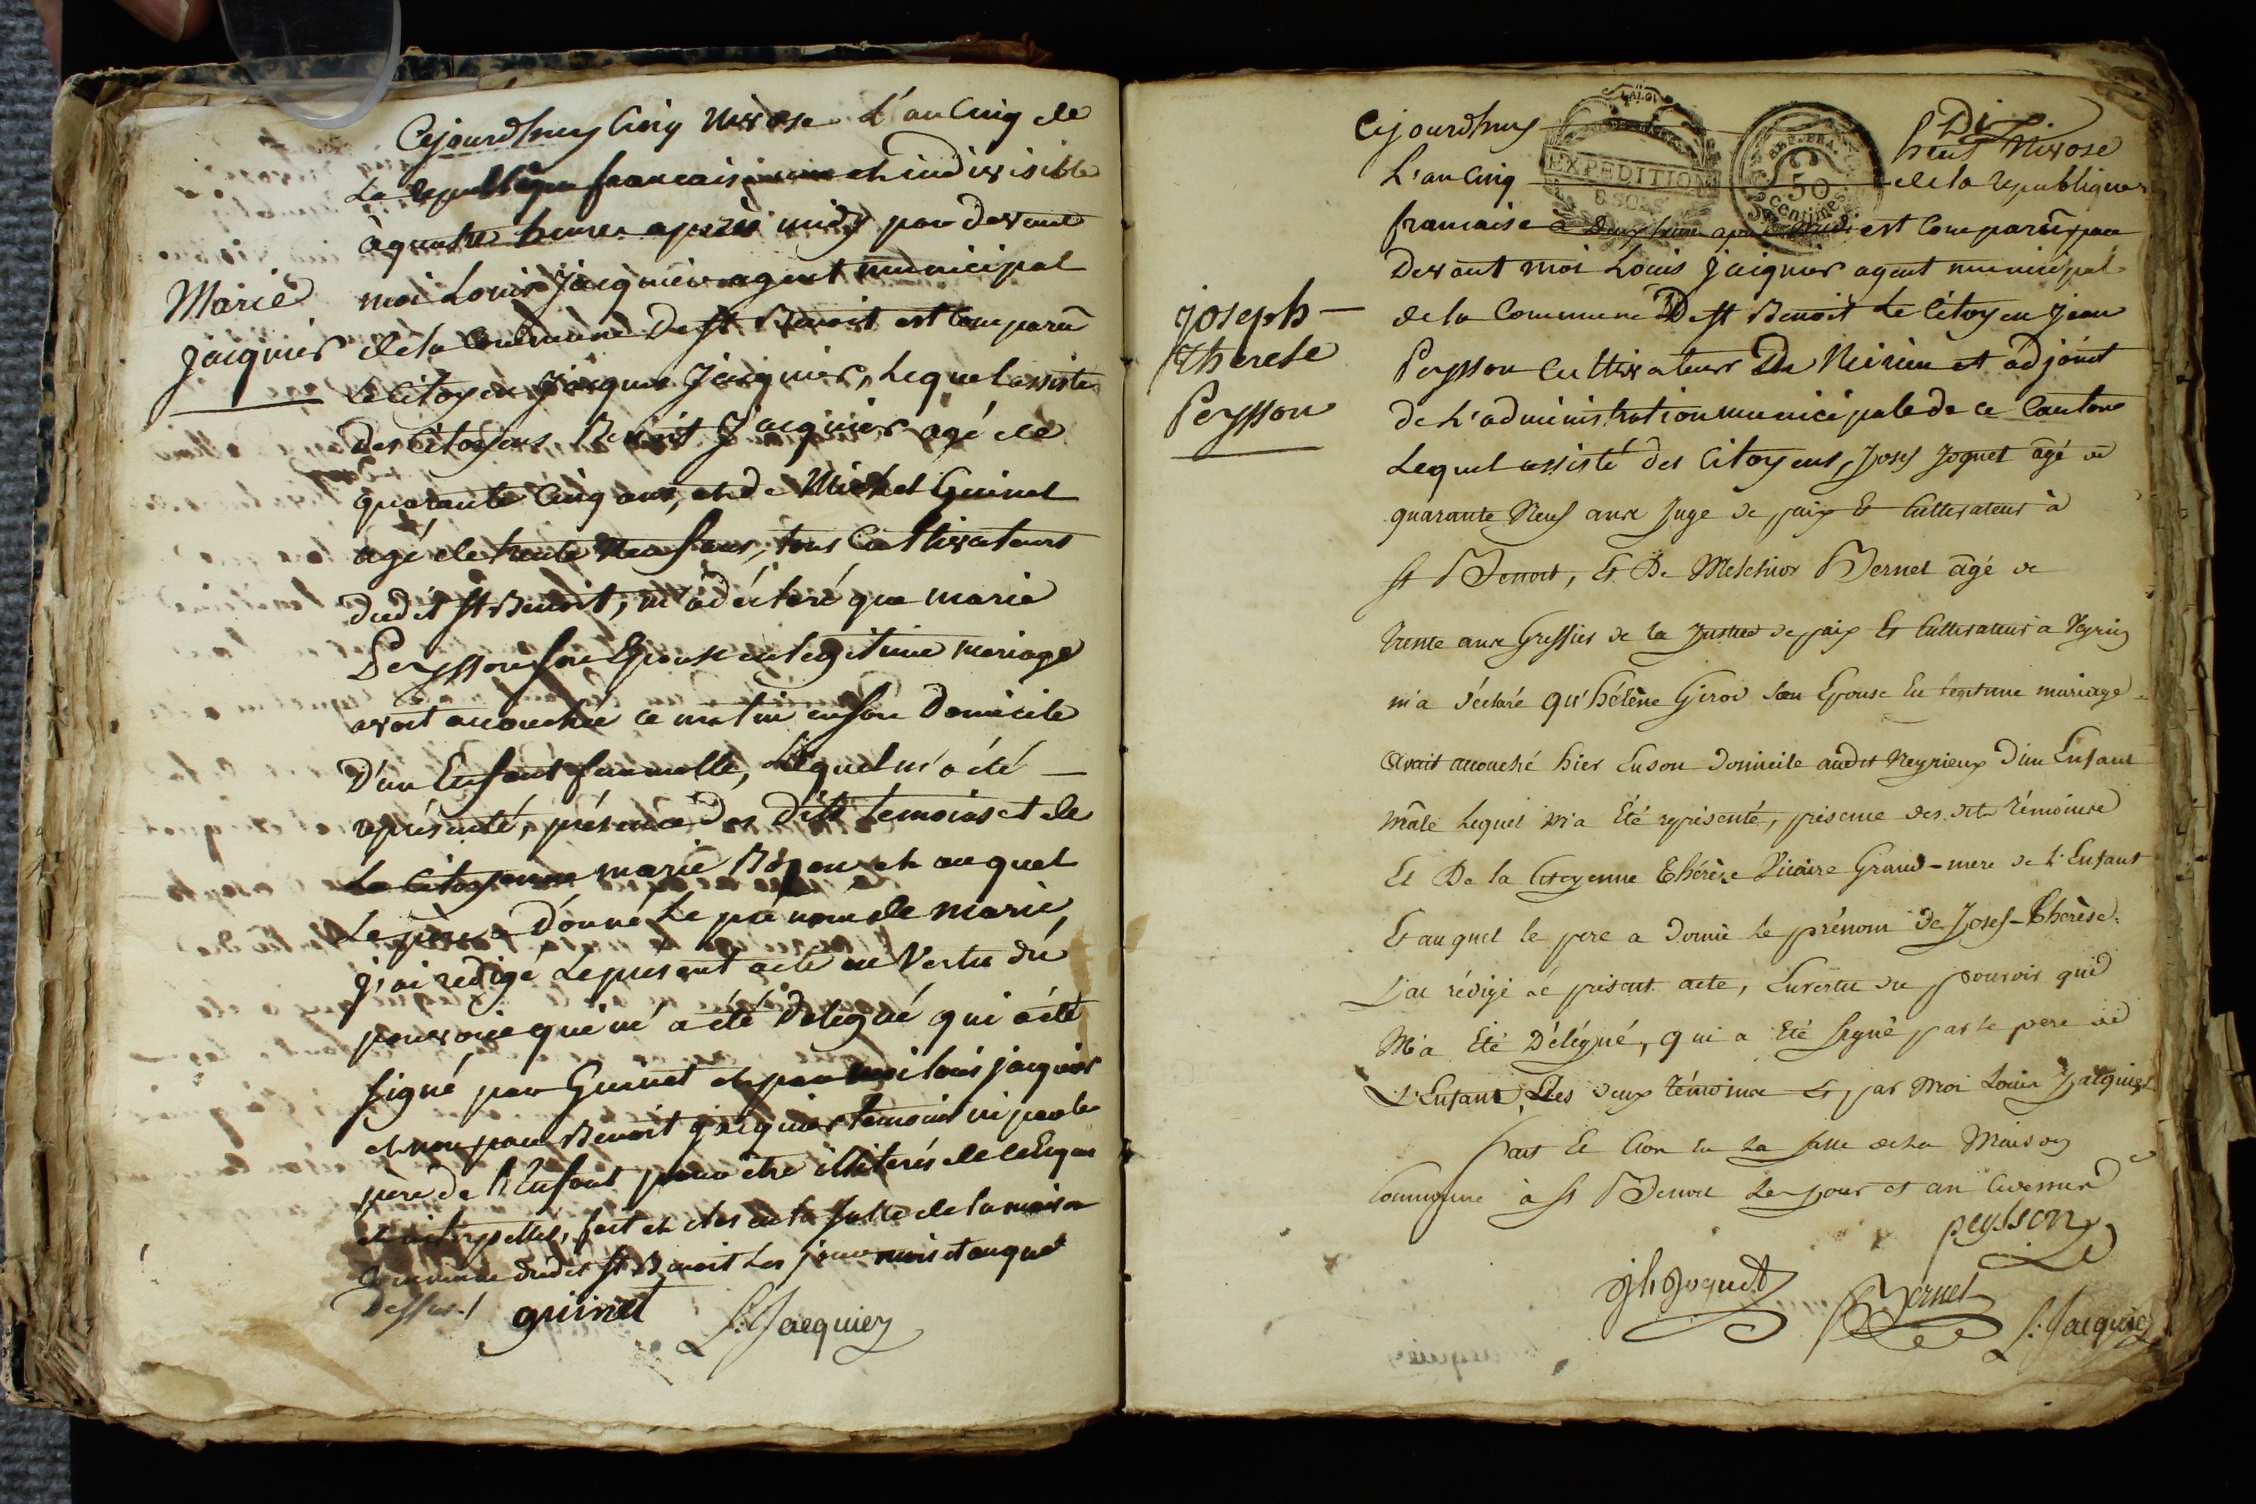 Cejourdhuy Cinq Nivose L'an Cinq de
La republique francaise une et indivisible
à quatre heures après midy par devant
Marie
moi Louis Jacquier agent municipal
jacquier
de la Commune De St Benoit est Comparû
Le Citoyen Jacque Jacquier, Lequel assisté
des Citoyens Benoit Jacquier agé de
quarante Cinq ans, et de Michel Guinet
agé de trente Neuf ans, tous Cultivateurs
dudit St Benoit, m'a déclaré que marie
Peysson son Epouse en legitime mariage
avoit accouchée ce matin en son Domicile
D'un Enfant fammelle, Lequel m'a été
représenté, présence Des Dits temoins et de
La Citoyenne marie et auquel
Le père a Donné Le prénom de marie,
j'ai redigé Le present acte en Vertu du
pouvoir qui m'a été Delegué qui a été
signé par Guinet et par moi louis jacquier
et non par Benoit jacquier temoins ni par le
père de l'Enfant pour etre illiterés de ce Enquis
et interpellés, fait et clos en la salle de la maison
Commune dudit St Benoit Les jour mois et an que
Dessus./ guinet L: Jacquier
Cejourdhuy Dix
huit Nivose
L'an Cinq de la republique
EXPEDITION
50
centimes
francaise à Deux heures après midi est Comparû par
Devant moi Louis Jaiquier agent municipal
joseph-
therese
Peysson
de la Commune De St Benoit Le Citoyen Jean
Peysson Cultivateur De Neirieu et adjoint
de L'administration municipale de ce Canton
Lequel assisté des Citoyens, Josef Joguet âgé de
quarante Neuf ans Juge de paix Et Cultivateur à
St Benoit, Et De Melchior Bernet âgé de
trente ans Greffier de la Justice de paix Et Cultivateur à Veyrin
m'a déclaré qu'hélène Girod Son Epouse En legitime mariage
avait accouché hier En son domicile audit Neyrieux D'un Enfant
mâle Lequel M'a Eté représenté, présence des dits témoins
Et De la Citoyenne Thérèse Vicaire Grand-mere de L'Enfant
Et auquel le pere a donné le prénom De Josef-Therèse.
J'ai rédigé le présent acte, En vertu du pouvoir qui
M'a Eté Délégué, qui a Eté signé par le pere de
L'Enfant, Les deux témoins Et par Moi Louis Jacquier
fait Et Clos En La Salle de la Maison
Commune à St Benoit Les jour et an
peysson
Jh Joguet Bernet L: Jacquier